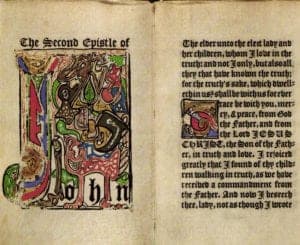 The Second Epistle of
John
The elder unto the elect lady and
her children, whom I love in the
truth; and not I only, but also all
they that have known the truth;
for the truth's sake, which dwell-
eth in us, & shall be with us for ever
Grace be with you, mer-
cy, & peace, from God
the Father, and from
the Lord JESUS
CHRIST, the Son of the Fath-
er, in truth and love. I rejoiced
greatly that I found of thy child
ren walking in truth, as we have
received a commandment from
the Father. And now I beseech
thee, lady, not as though I wrote